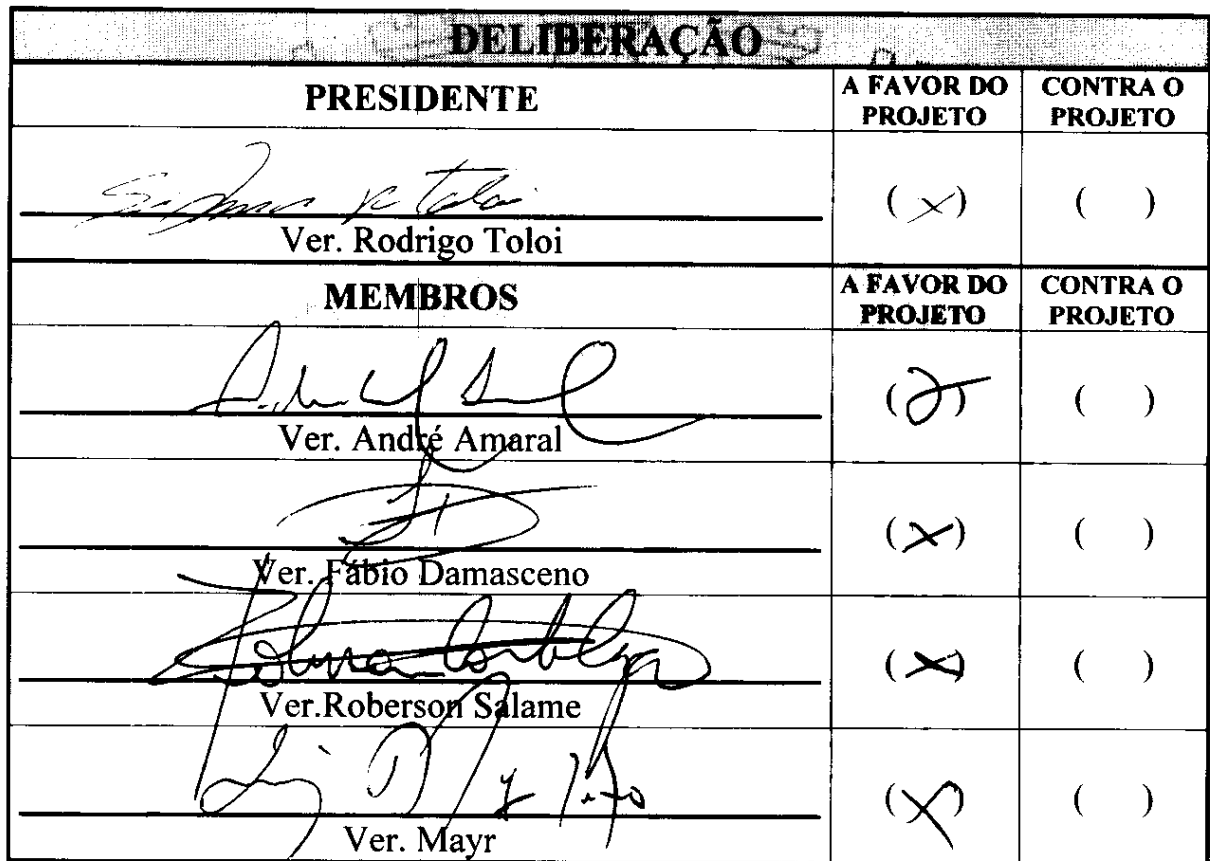 DELIBERAÇÃO
PRESIDENTE A FAVOR DO PROJETO CONTRA O PROJETO
( x ) ( )
Ver. Rodrigo Toloi
MEMBROS A FAVOR DO PROJETO CONTRA O PROJETO
( ) ( )
Ver. André Amaral
( x ) ( )
Ver. Fábio Damasceno
( x ) ( )
Ver.Roberson Salame
( x ) ( )
Ver. Mayr